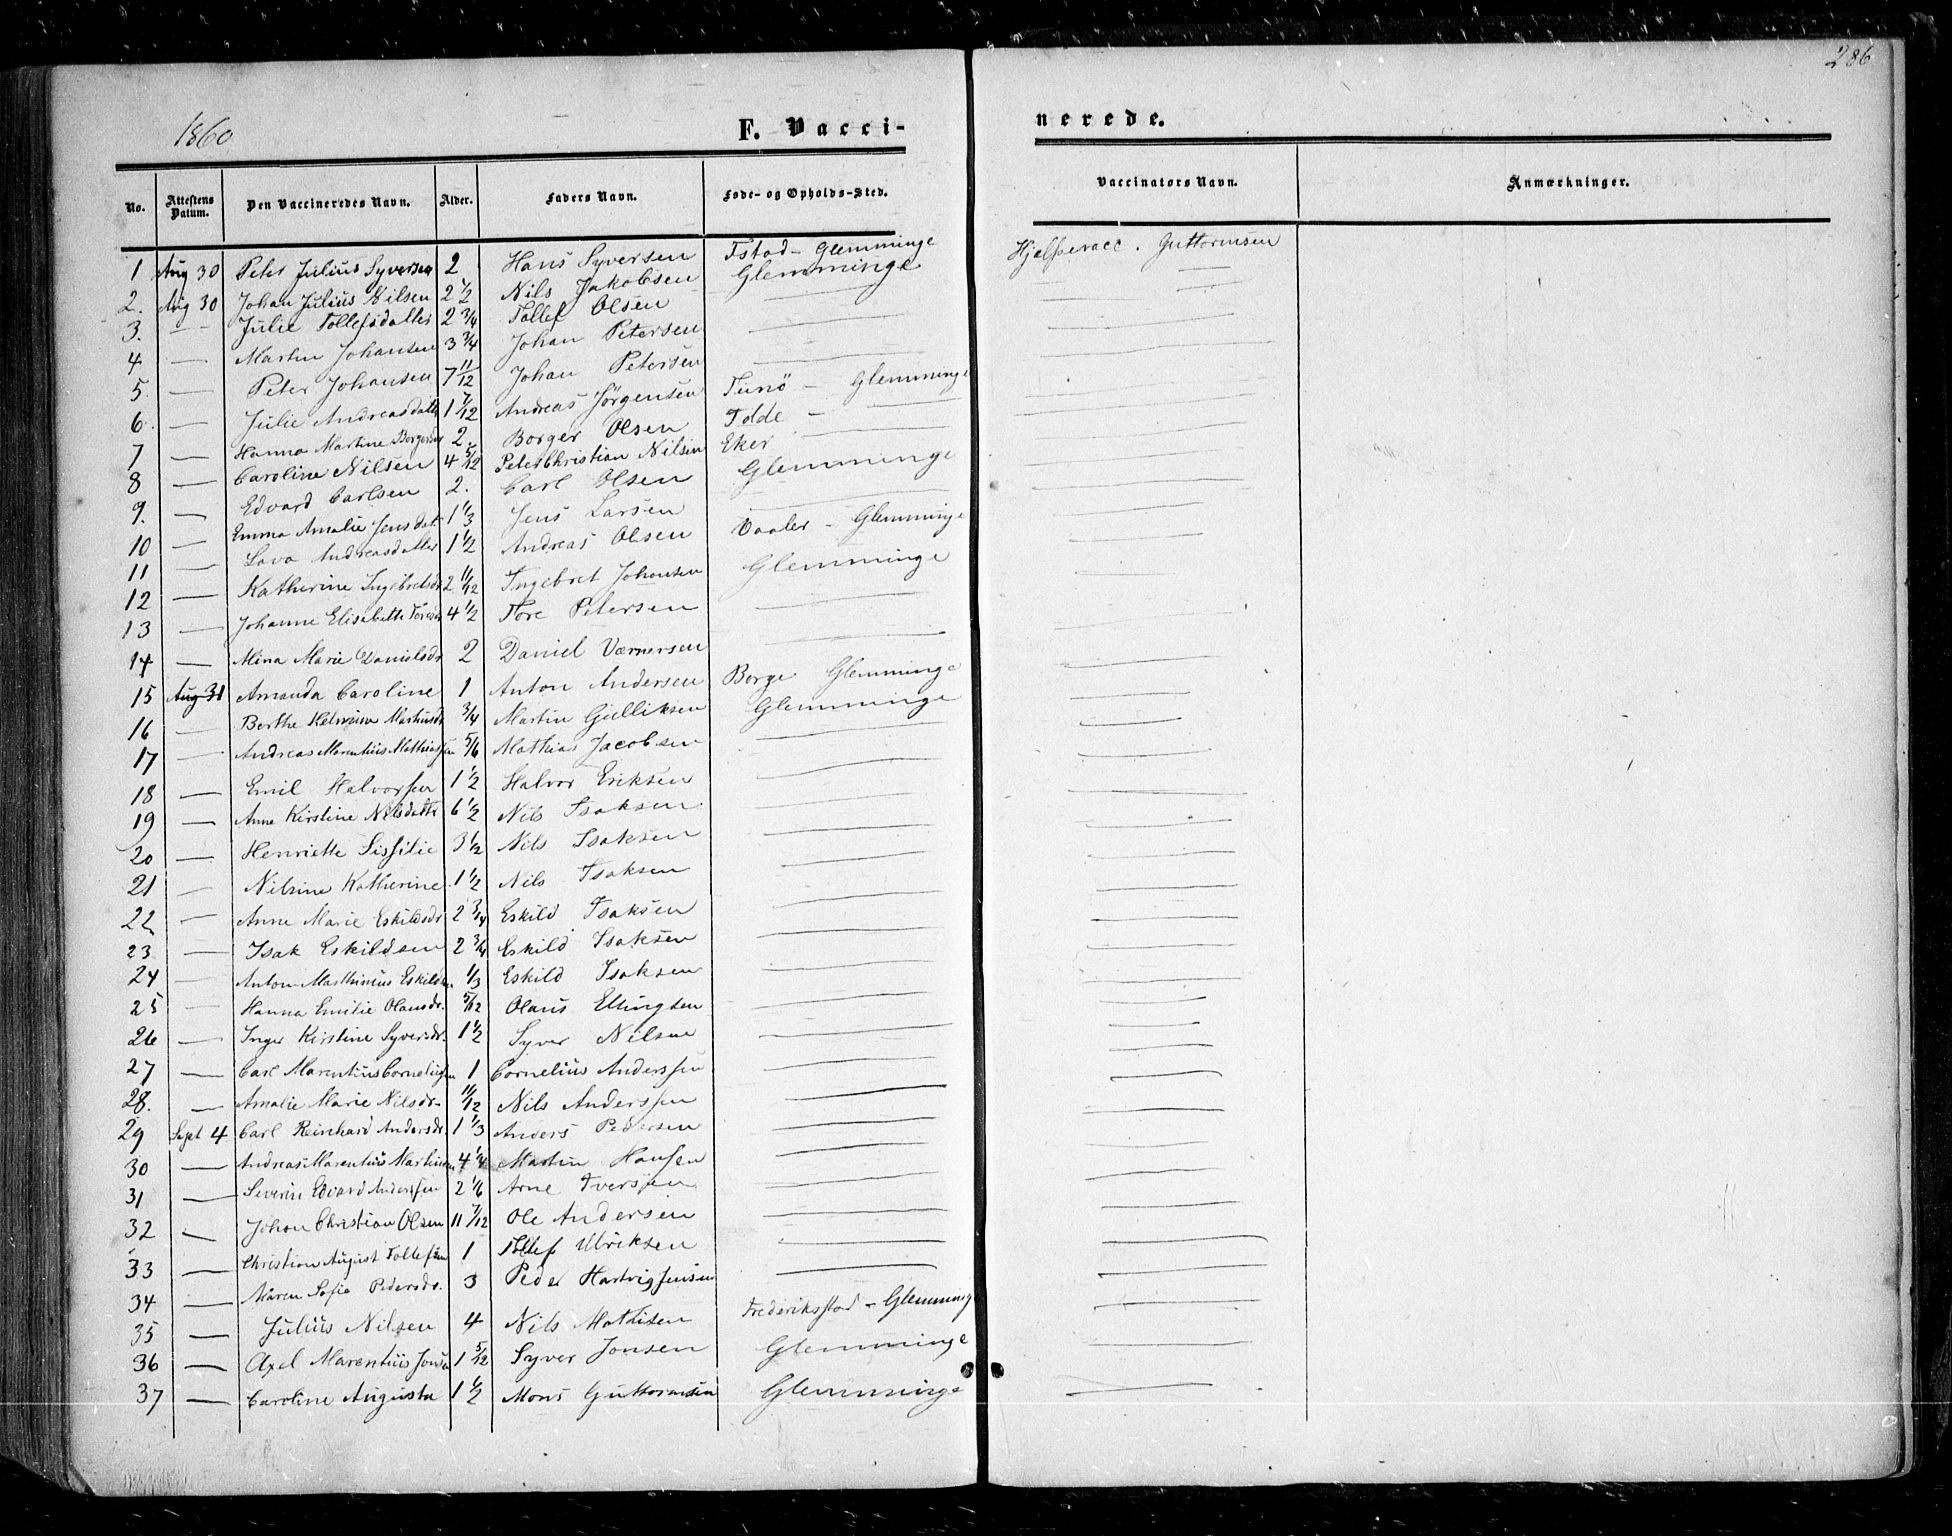 286
1860 F. Vacci- nerede.
No. Attestens Datum. Den Vaccineredes Navn. Alder. Faders Navn. Føde- og Opholds-Sted. Vaccinators Navn. Anmærkninger.
1 Aug 30 Peter Julius Syversen 2 Hans Syversen Fstad - Glemminge Hjelpevacc. Guttormsen
2. Aug 30 Johan Julius Nilsen 2 1/2 Nils Jakobsen Glemminge —
3. — Julie Tollefsdatter 2 3/4 Tollef Olsen — —
4 — Martin Johansen 3 3/4 Johan Petersen — —
5 — Peter Johansen 7 11/12 Johan Petersen — —
6 — Julie Andreasdatt 1 7/12 Andreas Jørgensen Tunø - Glemminge —
7 — Hanna Martine Borgersdr 2. Borger Olsen — —
8 — Caroline Nilsen 4 5/12 Peter Christian Nilsen Eker — —
9. — Edvard Carlsen 2. Carl Olsen Glemminge —
10 — Emma Amalie Jensdat. 1 1/3 Jens Larsen — —
11 — Andreasdatter 1 1/2 Andreas Olsen Vaaler - Glemminge —
12 — Katherine Ingebretsdr 2 11/12 Ingebret Johansen Glemminge —
13 — Johanne Elisabeth Toresdr 4 1/2 Tore Petersen — —
14 — Mina Marie Danielsdr 2 Daniel Værnersen — —
15 Aug 31 Amanda Caroline 1 Anton Andersen Borge Glemminge —
16 — Berthe Helmine Martinsdr 3/4 Martin Gulliksen Glemminge —
17 — Andreas Marentius Mathiassen 5/6 Mathias Jacobsen — —
18 — Emil Halvorsen 1 1/2 Halvor Eriksen — —
19 — Anne Kirstine Nilsdatt 6 1/2 Nils Isaksen — —
20 — Henriette Sissilie 3 1/2 Nils Isaksen — —
21 — Nilsine Katherine 1 1/2 Nils Isaksen — —
22 — Anne Marie Eskildsdr 2 3/4 Eskild Isaksen — —
23 — Isak Eskildsen 2 3/4 Eskild Isaksen — —
24 — Anton Marthinius Eskildsen 1/3 Eskild Isaksen — —
25 — Hanna Emilie Olausdr. 5/12 Olaus Ellingsen — —
26 — Inger Kirstine Syversdr. 1 1/2 Syver Nilsen — —
27 — Carl Marentius Corneliusen 1 Cornelius Anderssen — —
28. — Amalie Marie Nilsdr. 11/12 Nils Anderssen — —
29 Sept 4 Carl Reinhard Andersdr. 1 1/3 Anders Pedersen — —
30 — Andreas Marentius Martinsen 4 1/4 Martin Hansen — —
31 — Severin Edvard Anderssen 2 1/6 Arne Iversen — —
32 — Johan Christian Olsen 11 7/12 Ole Andersen — —
33 — Christian August Tollefsen 1 Tollef Ulriksen — —
34 — Maren Sofie Pedersdr. 3 Peder Hartvigsensen — —
35 — Julius Nilsen 4 Nils Mathisen Frederiksstad - Glemming —
36 — Axel Marentius Jonsen 1 5/12 Syver Jonsen Glemminge —
37 — Caroline Augusta 1 1/2 Mons Guttormsen Glemminge —